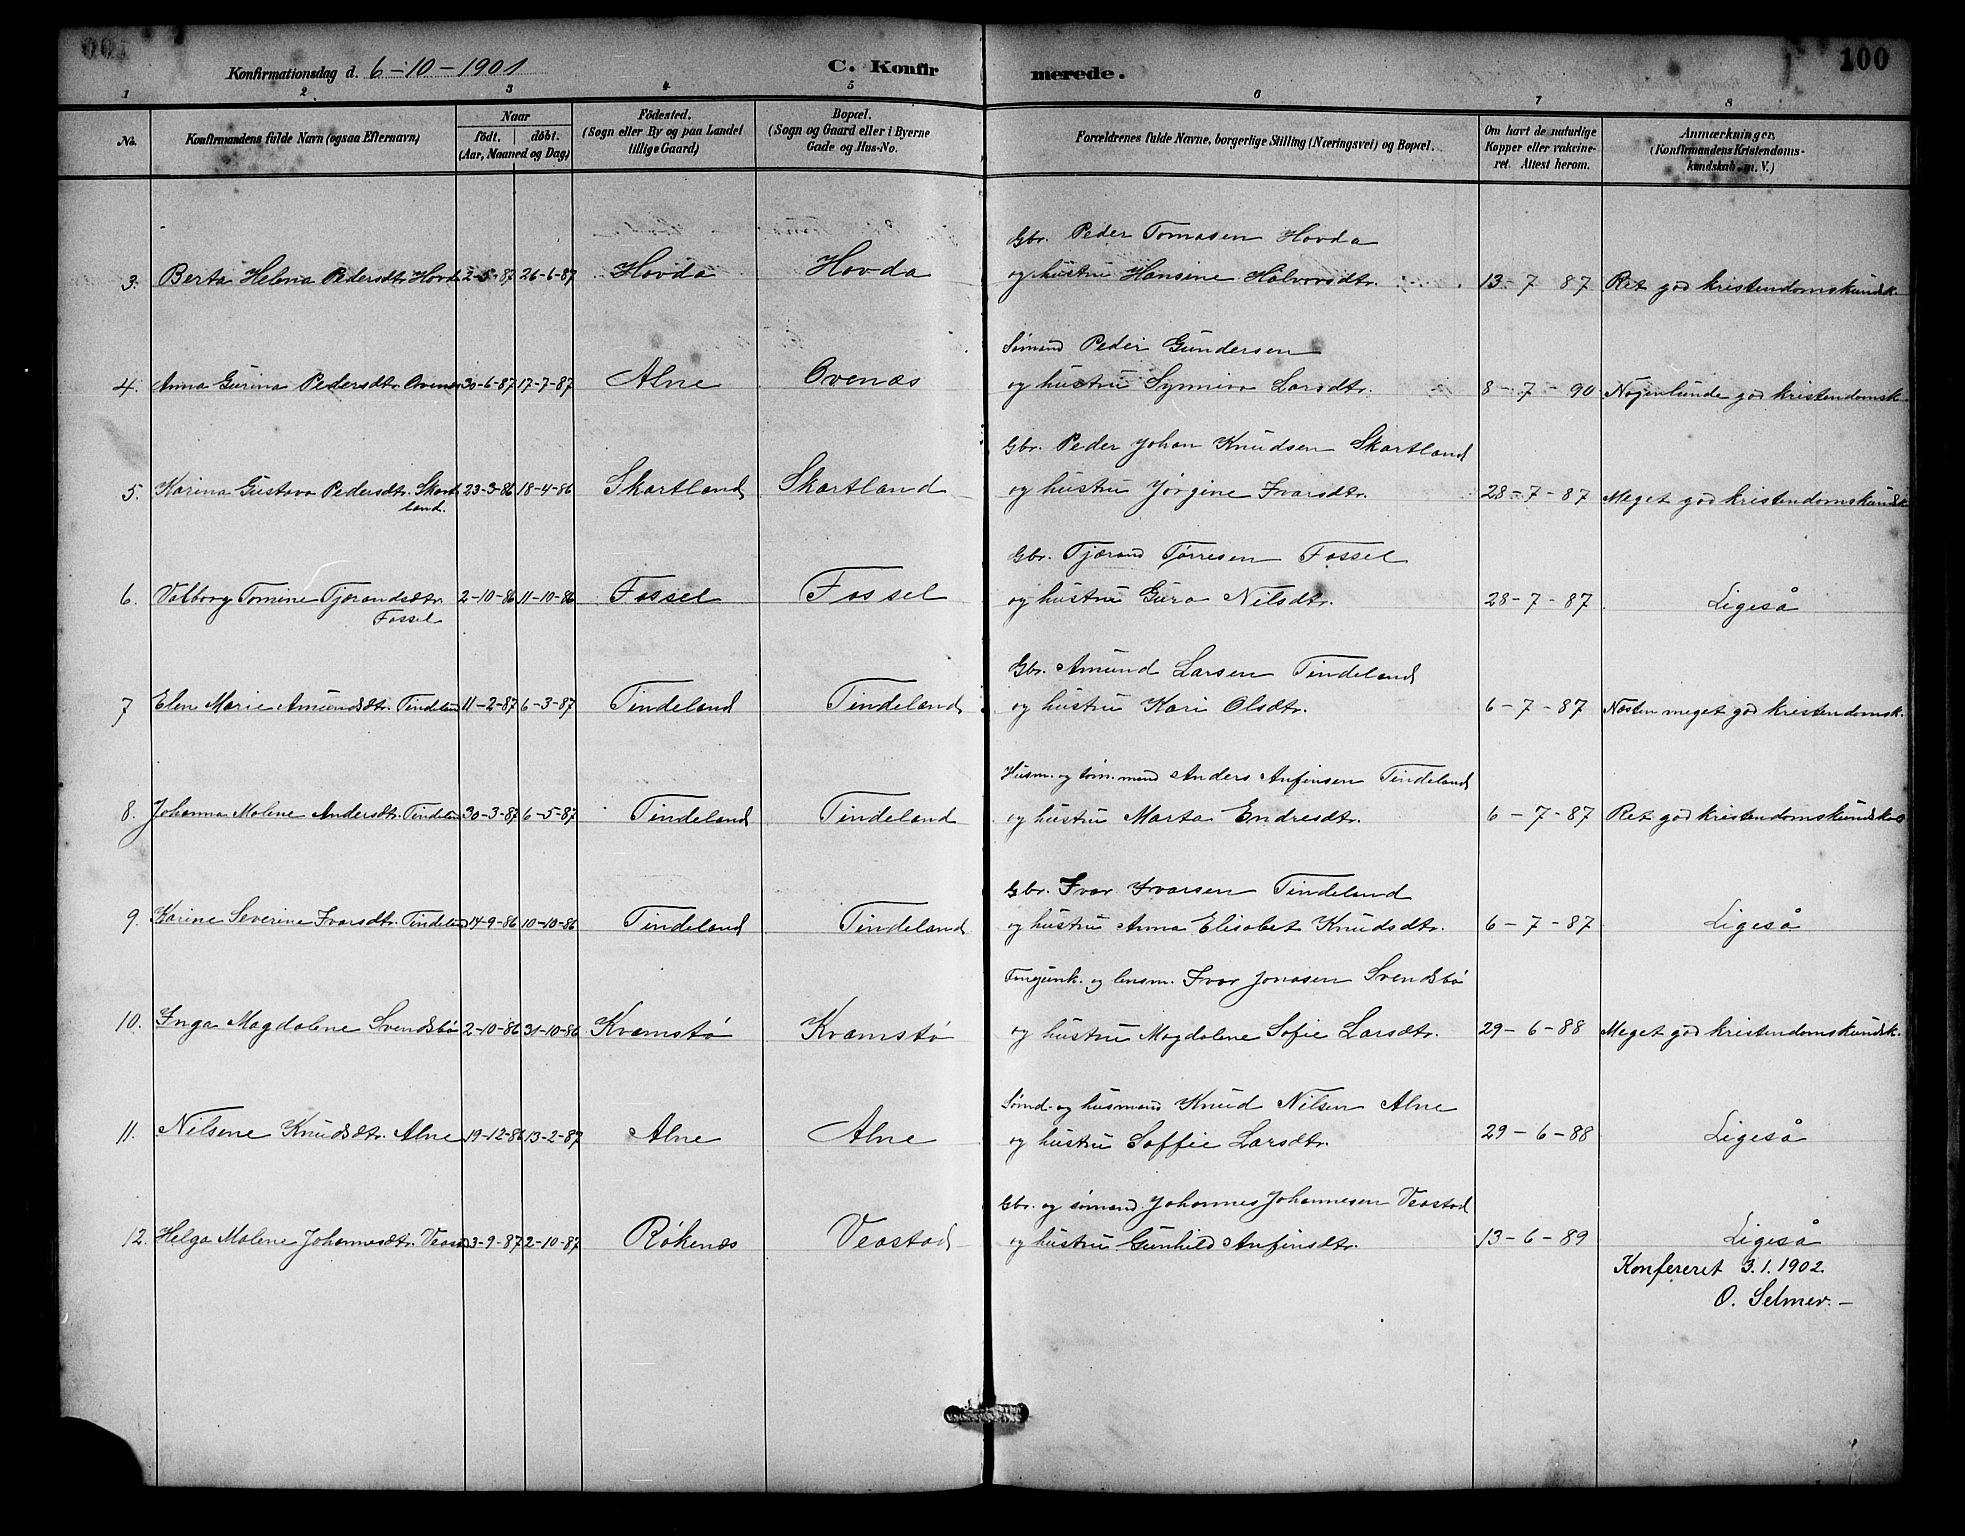 Konfirmationsdag d. 6-10-1901 C. Konfirmerede. 100
1 2 3 4 5 6 7 8
No. Konfirmandens fulde Navn (ogsaa Efternavn) Naar födt. döbt. (Aar, Maaned og Dag) Födested. (Sogn eller By og paa Landet tillige Gaard) Bopæl. (Sogn og Gaard eller i Byerne Gade og Hus-No. Forældrenes fulde Navne, borgerlige Stilling (Næringsvei) og Bopæl. Om havt de naturlige Kopper eller vakcineret. Attest herom. Anmærkninger. (Konfirmandens Kristendomskundskab. m. V.)
Gbr. Peder Tomasen Hovda
3. Berta Helena Pedersdtr. Hovda 2-5-87 26-6-87 Hovda Hovda og hustru Hansine Halvorsdtr. 13-7-87 Ret god kristendomskundsk.
Sømand Peder Gundersen
4. Anna Gurina Pedersdtr. Ovenæs 30-6-87 17-7-87 Alne Ovenæs og hustru Synniva Larsdtr. 8-7-90 Nogenlunde god kristendomsk.
Gbr. Peder Johan Knudsen Skartland
5. Karina Gustava Pedersdtr. Skart- 23-3-86 18-4-86 Skartland Skartland og hustru Jørgine Ivarsdtr. 28-7-87 Meget god kristendomskundsk.
land.
Gbr. Tjærand Tørresen Fossel
6. Valborg Tomine Tjærandsdtr. 2-10-86 11-10-86 Fossel Fossel og hustru Guro Nilsdtr. 28-7-87 Ligeså
Fossel
Gbr. Amund Larsen Tindeland
7 Elen Marie Amundsdtr. Tindeland 11-2-87 6-3-87 Tindeland Tindeland og hustru Kari Olsdtr. 6-7-87 Næsten meget god kristendomsk.
Husm. og tøm.mand Anders Anfinsen Tindeland
8. Johanna Malene Andersdtr. Tindeland 30-3-87 6-5-87 Tindeland Tindeland og hustru Marta Endresdtr. 6-7-87 Ret god kristendomskundsk.
Gbr. Ivar Ivarsen Tindeland
9. Karine Severine Ivarsdtr. Tindeland 14-9-86 10-10-86 Tindeland Tindeland og hustru Anna Elisabet Knudsdtr. 6-7-87 Ligeså
og lensm. Ivar Jonasen Svendsbø
10. Inga Magdalene Svendsbø 2-10-86 31-10-86 Kvamstø Kvamstø og hustru Magdalene Sofie Larsdtr. 29-6-88 Meget god kristendomskundsk.
Sømd- og husmand Knud Nilsen Alne
11. Nilsene Knudsdtr. Alne 19-12-86 13-2-87 Alne Alne og hustru Soffie Larsdtr. 29-6-88 Ligeså
Gbr. og sømand Johannes Johannesen Veastad
12. Helga Malene Johannesdtr. Veastad 3-9-87 2-10-87 Røkenæs Veastad og hustru Gunhild Anfinsdtr. 13-6-89 Ligeså
Konfereret 3.1.1902.
O. Selmer.-